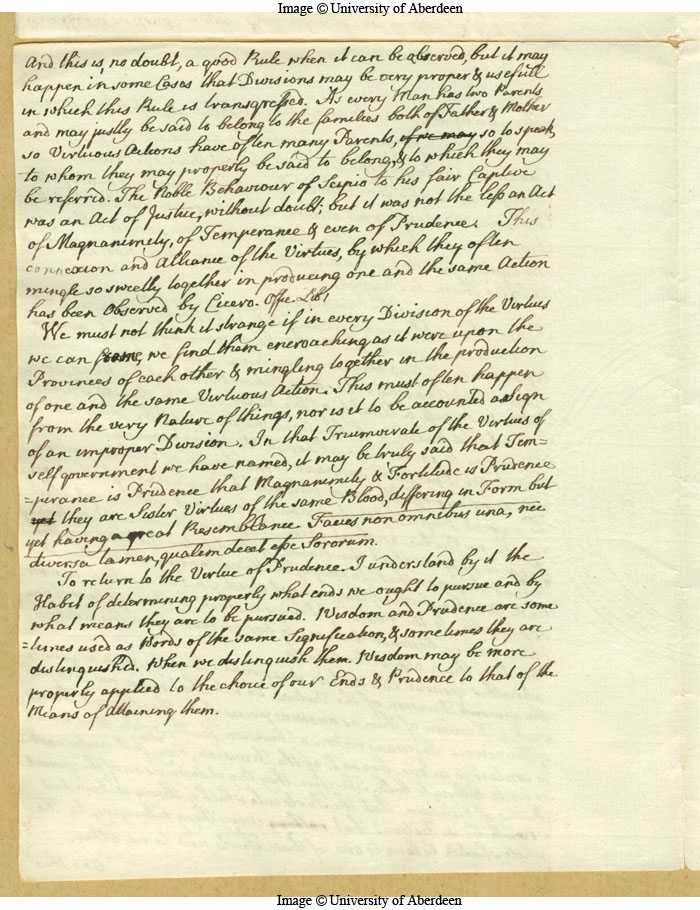 Image © University of Aberdeen
And this is, no doubt, a good Rule when it can be observed, but it may
happen in some Cases that Divisions may be very proper & usefull
in which this Rule is transgressed. As every Man has two Parents
and may justly be said to belong to the families both of Father & Mother
so Virtuous Actions have often many Parents, if we may so to speak,
to whom they may properly be said to belong, & to which they may
be referrd. The Noble Behaviour of Scipio to his fair Captive
was an Act of Justice, without doubt; but it was not the less an Act
of Magnanimity, of Temperance & even of Prudence. This
connexion and Alliance of the Virtues, by which they often
mingle so sweetly together in producing one and the same Action
has been Observed by Cicero. Offic. Lib 1
We must not think it strange if in every Division of the Virtues
we can form, we find them encroaching as it were upon the
Provinces of each other & mingling together in the production
of one and the same Virtuous Action. This must often happen
from the very Nature of things, nor is it to be accounted a Sign
of an improper Division. In that Triumvirate of the Virtues of
self government we have named, it may be truly said that Tem=
=perance is Prudence that Magnanimity & Fortitude is Prudence
yet they are Sister Virtues of the same Blood, differing in Form but
yet having a great Resemblance Facies non omnibus una, nec
diversa tamen, qualem decet esse Sororum.
To return to the Virtue of Prudence. I understand by it the
Habit of determining properly what ends we ought to pursue and by
what means they are to be pursued. Wisdom and Prudence are some
=times used as Words of the same Signification, & sometimes they are
distinguishd. When we distinguish them Wisdom may be more
properly applied to the choice of our Ends & Prudence to that of the
Means of attaining them.
Image © University of Aberdeen